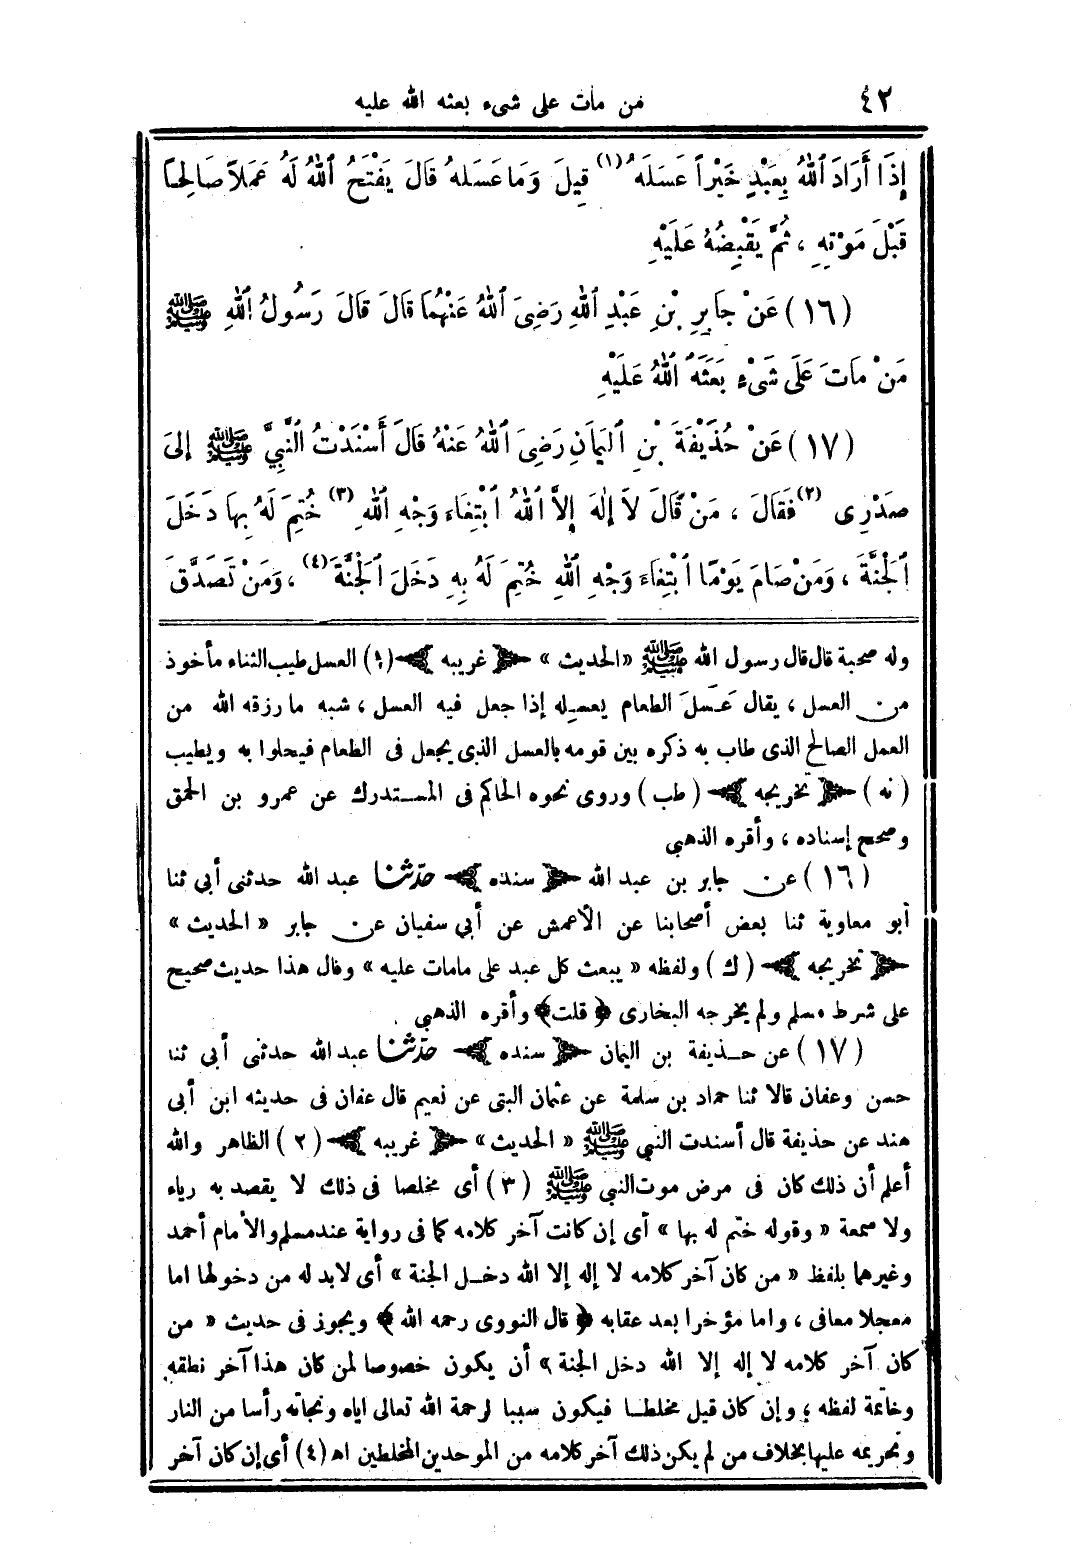 ٤٢
من مات على شىء بعثه الله عليه
إِذَا أَرَادَ اللهُ بِعَبْدٍ خَيْراً عَسَلَهُ (١) قِيلَ وَمَا عَسَلهُ قَالَ يَفْتَحُ اللهُ لَهُ عَمَلاً صَالِحاً
قَبْلَ مَوْتِهِ ، ثُمَّ يَقْبِضُهُ عَلَيْهِ
(١٦) عَنْ جَابِرِ بْنِ عَبْدِ اللهِ رَضِىَ اللهُ عَنْهُمَا قَالَ قَالَ رَسُولُ اللهِ ﷺ
مَنْ مَاتَ عَلَى شَىْءٍ بَعَثَهُ اللهُ عَلَيْهِ
(١٧) عَنْ حُذَيْفَةَ بْنِ الْيَمَانِ رَضِىَ اللهُ عَنْهُ قَالَ أَسْنَدْتُ النَّبِيَّ ﷺ إِلَى
صَدْرِى (٢) فَقَالَ ، مَنْ قَالَ لاَ إِلٰهَ إِلاَّ اللهُ ابْتِغَاءَ وَجْهِ اللهِ (٣) خُتِمَ لَهُ بِهَا دَخَلَ
الْجَنَّةَ ، وَمَنْ صَامَ يَوْمًا ابْتِغَاءَ وَجْهِ اللهِ خُتِمَ لَهُ بِهِ دَخَلَ الْجَنَّةَ (٤) ، وَمَنْ تَصَدَّقَ
وله صحبة قال قال رسول الله ﷺ «الحديث» ﴿ غريبه ﴾ (١) العسل طيب الثناء مأخوذ
من العسل ، يقال عَسَلَ الطعام يعسله إذا جعل فيه العسل ، شبه ما رزقه الله من
العمل الصالح الذى طاب به ذكره بين قومه بالعسل الذى يجعل فى الطعام فيحلوا به ويطيب
(نه) ﴿ تخريجه ﴾ (طب) وروى نحوه الحاكم فى المستدرك عن عمرو بن الحمق
وصحح إسناده ، وأقره الذهبي
(١٦) عن جابر بن عبد الله ﴿ سنده ﴾ حدّثنا عبد الله حدثنى أبي ثنا
أبو معاوية ثنا بعض أصحابنا عن الأعمش عن أبي سفيان عن جابر « الحديث »
﴿ تخريجه ﴾ (ك) ولفظه « يبعث كل عبد على مامات عليه » وقال هذا حديث صحيح
على شرط مسلم ولم يخرجه البخارى ﴿ قلت ﴾ وأقره الذهبي
(١٧) عن حذيفة بن اليمان ﴿ سنده ﴾ حدّثنا عبد الله حدثنى أبي ثنا
حسن وعفان قالا ثنا حماد بن سلمة عن عثمان البتى عن نعيم قال عفان فى حديثه ابن أبى
هند عن حذيفة قال أسندت النبي ﷺ « الحديث» ﴿ غريبه ﴾ (٢) الظاهر والله
أعلم أن ذلك كان فى مرض موت النبي ﷺ (٣) أى مخلصا فى ذلك لا يقصد به رياء
ولا سمعة « وقوله ختم له بها » أى إن كانت آخر كلامه كما فى رواية عند مسلم والأمام أحمد
وغيرهما بلفظ « من كان آخر كلامه لا إله إلا الله دخل الجنة » أى لابد له من دخولها اما
معجلا معافى ، واما مؤخرا بعد عقابه ﴿ قال النووى رحمه الله ﴾ ويجوز فى حديث « من
كان آخر كلامه لا إله إلا الله دخل الجنة » أن يكون خصوصا لمن كان هذا آخر نطقه
وخاتمة لفظه ؛ وإن كان قبل مخلطا فيكون سببا لرحمة الله تعالى اياه ونجاته رأسا من النار
وتحريمه عليها بخلاف من لم يكن ذلك آخر كلامه من الموحدين المخلطين اه (٤) أى إن كان آخر